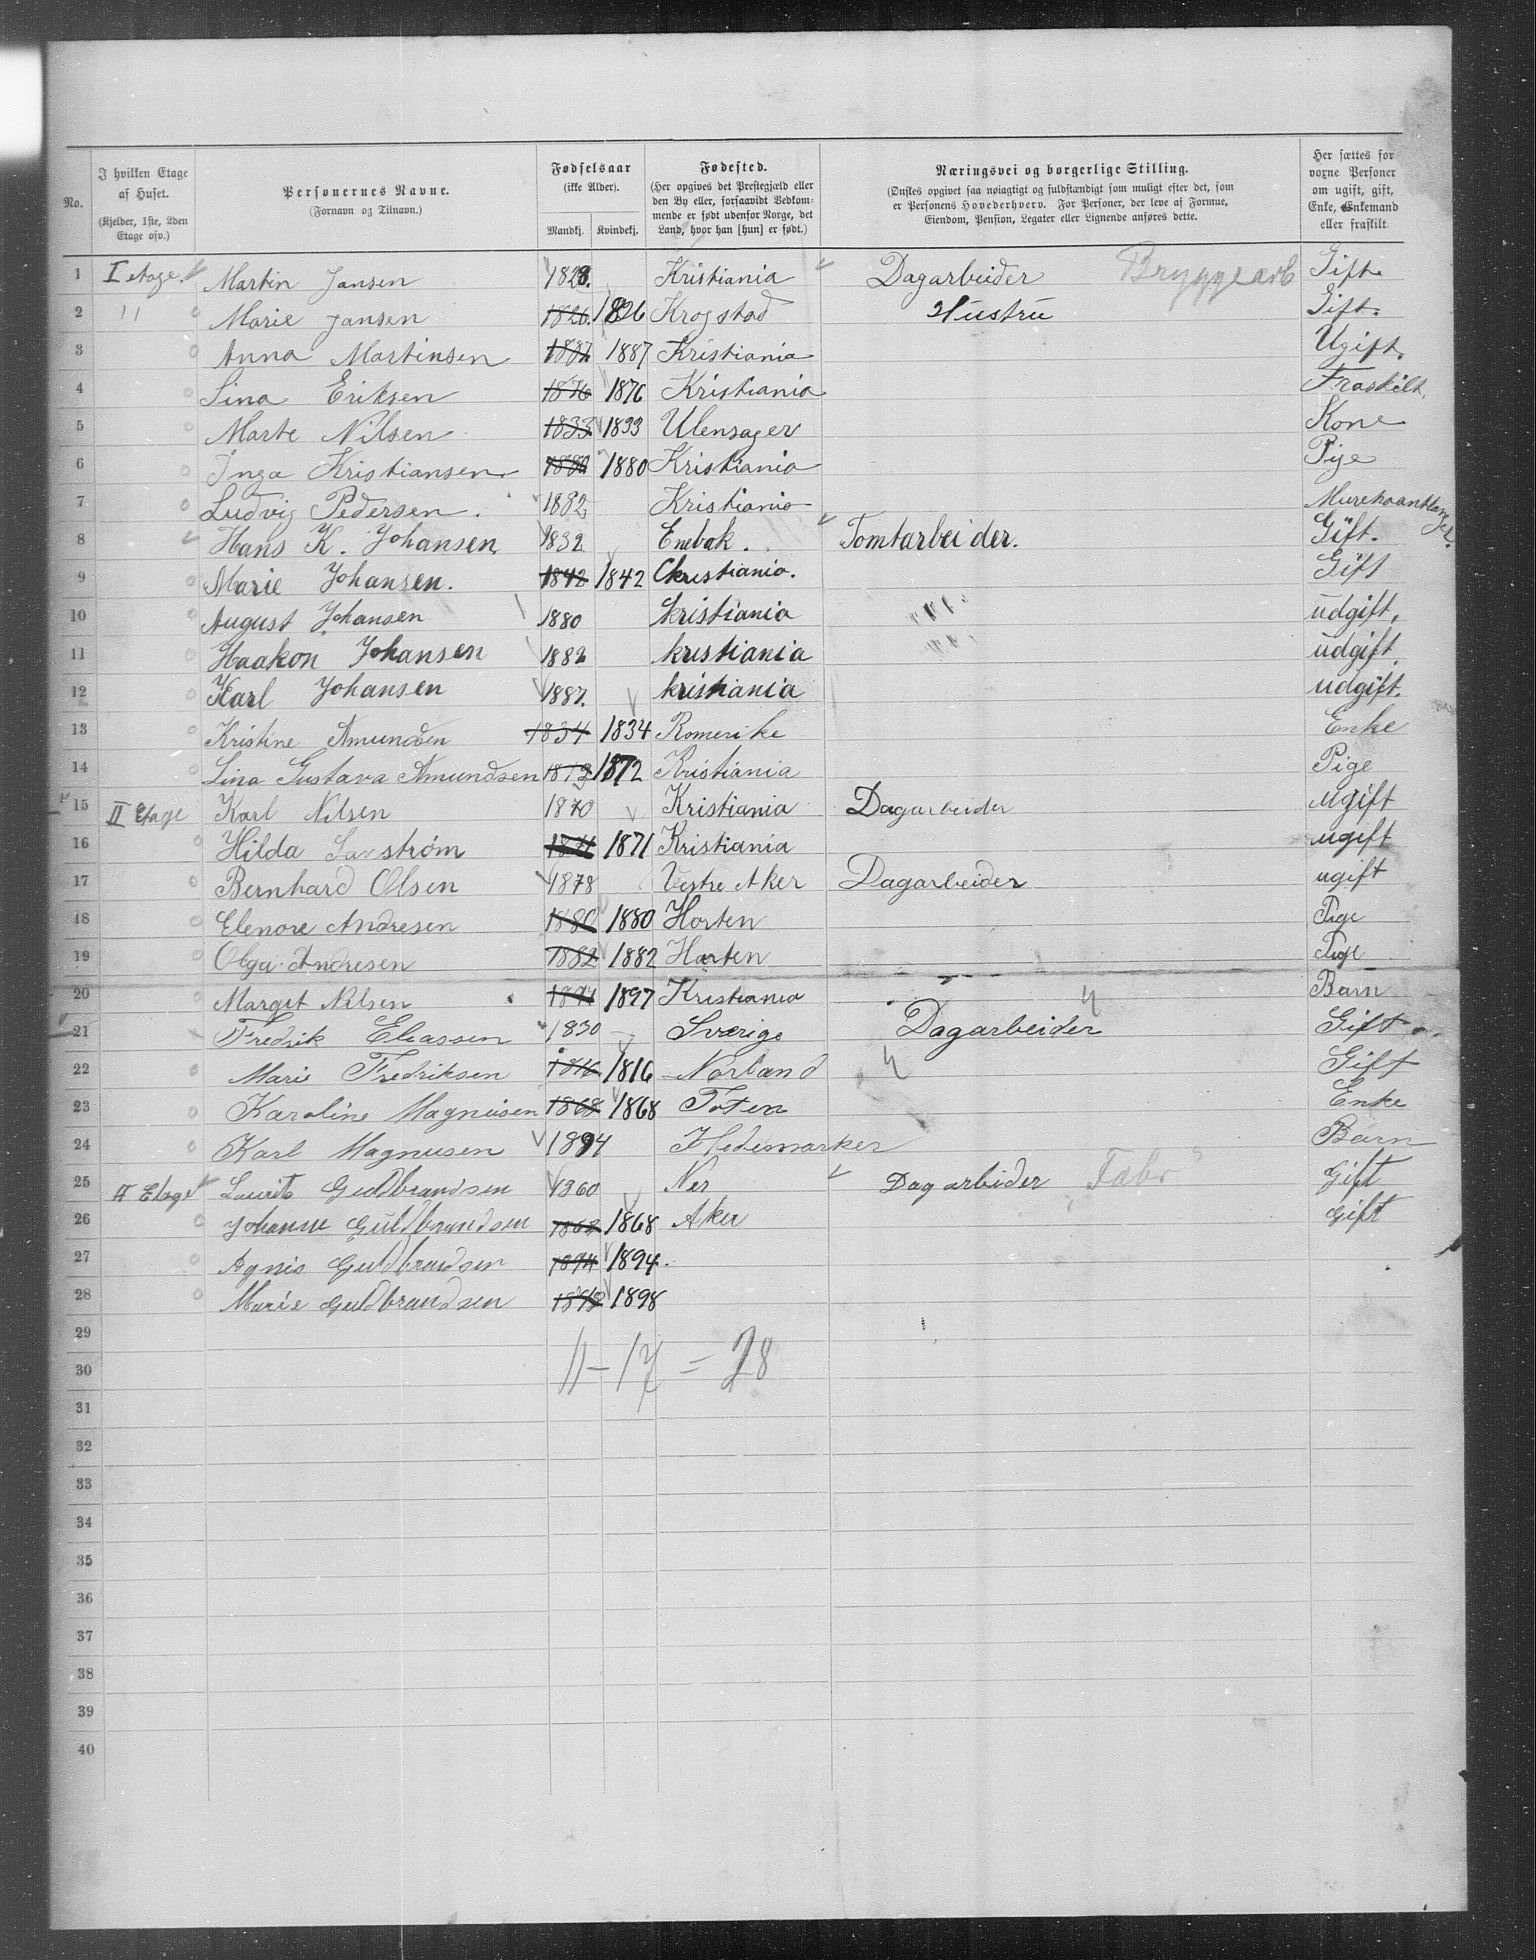 No.
I hvilken Etage af Huset. (Kjelder, 1ste, 2den Etage osv.)
Personernes Navne. (Fornavn og Tilnavn.)
Fødselsaar (ikke Alder). Mandkj. Kvindekj.
Fødested. (Her opgives det Prestegjæld eller den By eller, forsaavidt Vedkommende er født udenfor Norge, det Land, hvor han [hun] er født.)
Næringsvei og borgerlige Stilling. (Ønskes opgivet saa nøiagtigt og fuldstændigt som muligt efter det, som er Personens Hovederhverv. For Personer, der leve af Formue, Eiendom, Pension, Legater eller Lignende anføres dette.
Her sættes for voxne Personer om ugift, gift, Enke, Enkemand eller fraskilt
1 I etage. Martin Jansen 1828. Kristiania Dagarbeider Bryggearb Gift
2 " Marie Jansen 1826. 1826 Krogstad Hustru Gift.
3 Anna Martinsen 1887 1887 Kristiania Ugift.
4 Lina Eriksen 1876 1876 Kristiania Fraskilt.
5 Marte Nilsen 1833 1833 Ulensager Kone
6 Inga Kristiansen 1880 1880 Kristiania Pije
7 Ludvig Pedersen. 1882 Kristiania Murehaantlanger.
8 Hans K. Johansen 1832 Enebak. Tomtarbeider. Gift.
9 Marie Johansen. 1842 1842 Christiania. Gift
10 August Johansen 1880 kristiania " udgift.
11 Haakon Johansen 1882 kristiania " udgift
12 Karl Johansen 1887. kristiania udgift.
13 Kristine Amundsen 1834 1834 Romerike Enke
14 Lina Gustava Amundsen 1872 Kristiania Pige
15 II Etage Karl Nilsen 1870 Kristiania Dagarbeider ugift
16 Hilda 1871 1871 Kristiania ugift
17 Bernhard Olsen 1878 Vestre Aker Dagarbeider ugift
18 Elenore Andresen 1880 1880 Horten Pige
19 Olga Andresen 1882 1882 Horten Pige
20 Margit Nilsen 1897 1897 Kristiania Barn
21 Fredrik Eliassen 1830 Sverige Dagarbeider Gift
22 Marie Fredriksen 1816 1816 Norland Gift
23 Karoline Magnusen 1868 1868 Toten Enke
24 Karl Magnusen 1894 Hedemarken Barn
25 II Etage Laurits Guldbrandsen 1860 Nes Dagarbeider Fabr Gift
26 Johanne Guldbrandsen 1868 1868 Aker Gift
27 Agnis Guldbrandsen 1894 1894.
28 Marie Guldbrandsen 1898 1898
29
30 11 - 17 = 28
31
32
33
34
35
36
37
38
39
40